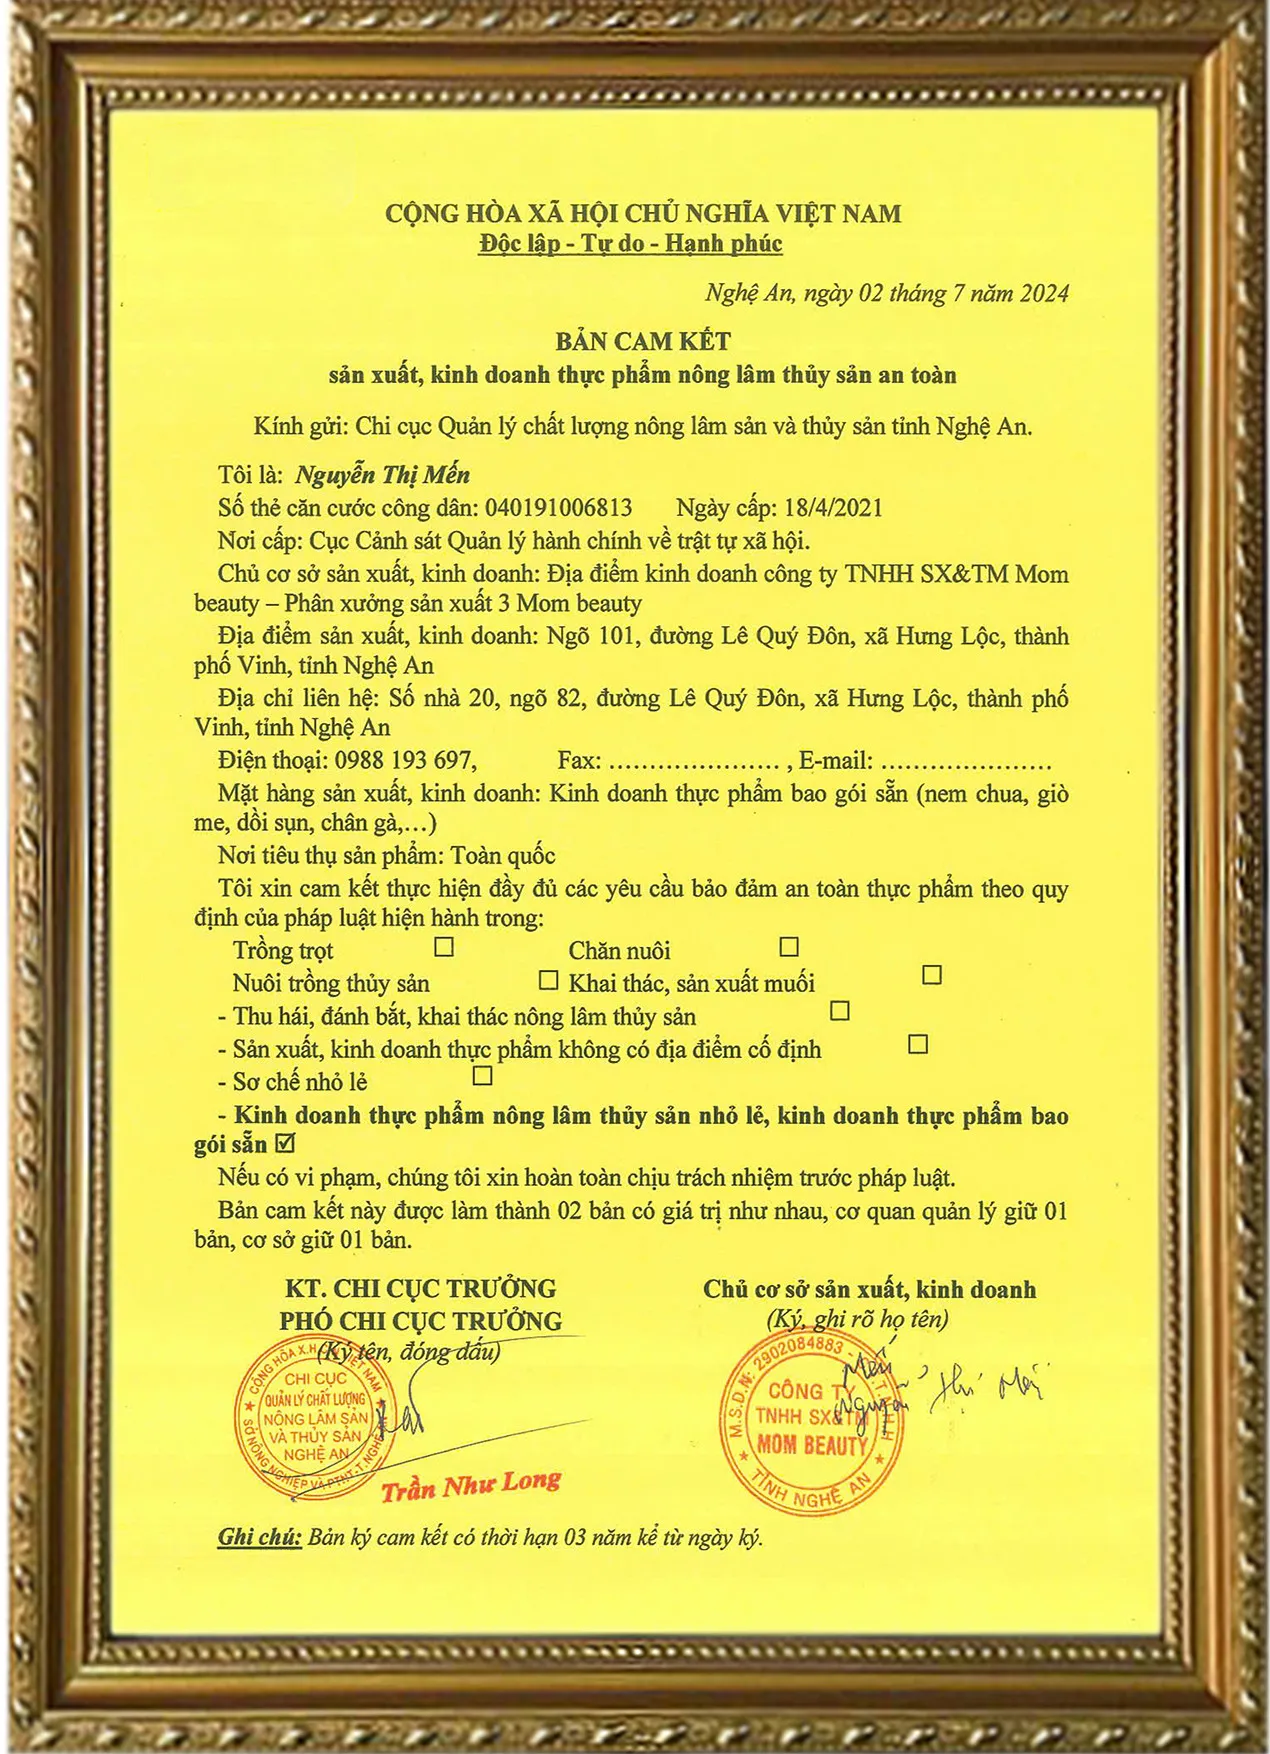 CỘNG HÒA XÃ HỘI CHỦ NGHĨA VIỆT NAM
Độc lập - Tự do - Hạnh phúc
Nghệ An, ngày 02 tháng 7 năm 2024
BẢN CAM KẾT
sản xuất, kinh doanh thực phẩm nông lâm thủy sản an toàn
Kính gửi: Chi cục Quản lý chất lượng nông lâm sản và thủy sản tỉnh Nghệ An.
Tôi là: Nguyễn Thị Mến
Số thẻ căn cước công dân: 040191006813 Ngày cấp: 18/4/2021
Nơi cấp: Cục Cảnh sát Quản lý hành chính về trật tự xã hội.
Chủ cơ sở sản xuất, kinh doanh: Địa điểm kinh doanh công ty TNHH SX&TM Mom
beauty – Phân xưởng sản xuất 3 Mom beauty
Địa điểm sản xuất, kinh doanh: Ngõ 101, đường Lê Quý Đôn, xã Hưng Lộc, thành
phố Vinh, tỉnh Nghệ An
Địa chỉ liên hệ: Số nhà 20, ngõ 82, đường Lê Quý Đôn, xã Hưng Lộc, thành phố
Vinh, tỉnh Nghệ An
Điện thoại: 0988 193 697, Fax: ..................... , E-mail: .....................
Mặt hàng sản xuất, kinh doanh: Kinh doanh thực phẩm bao gói sẵn (nem chua, giò
me, dồi sụn, chân gà,…)
Nơi tiêu thụ sản phẩm: Toàn quốc
Tôi xin cam kết thực hiện đầy đủ các yêu cầu bảo đảm an toàn thực phẩm theo quy
định của pháp luật hiện hành trong:
Trồng trọt ☐ Chăn nuôi ☐
Nuôi trồng thủy sản ☐ Khai thác, sản xuất muối ☐
- Thu hái, đánh bắt, khai thác nông lâm thủy sản ☐
- Sản xuất, kinh doanh thực phẩm không có địa điểm cố định ☐
- Sơ chế nhỏ lẻ ☐
- Kinh doanh thực phẩm nông lâm thủy sản nhỏ lẻ, kinh doanh thực phẩm bao
gói sẵn ☑
Nếu có vi phạm, chúng tôi xin hoàn toàn chịu trách nhiệm trước pháp luật.
Bản cam kết này được làm thành 02 bản có giá trị như nhau, cơ quan quản lý giữ 01
bản, cơ sở giữ 01 bản.
KT. CHI CỤC TRƯỞNG
PHÓ CHI CỤC TRƯỞNG
(Ký tên, đóng dấu)
CHI CỤC
QUẢN LÝ CHẤT LƯỢNG
NÔNG LÂM SẢN
VÀ THỦY SẢN
NGHỆ AN
Trần Như Long
Chủ cơ sở sản xuất, kinh doanh
(Ký, ghi rõ họ tên)
M.S.D.N: 2902084883
CÔNG TY
TNHH SX&TM
MOM BEAUTY
TỈNH NGHỆ AN
Mến
Nguyễn Thị Mến
Ghi chú: Bản ký cam kết có thời hạn 03 năm kể từ ngày ký.